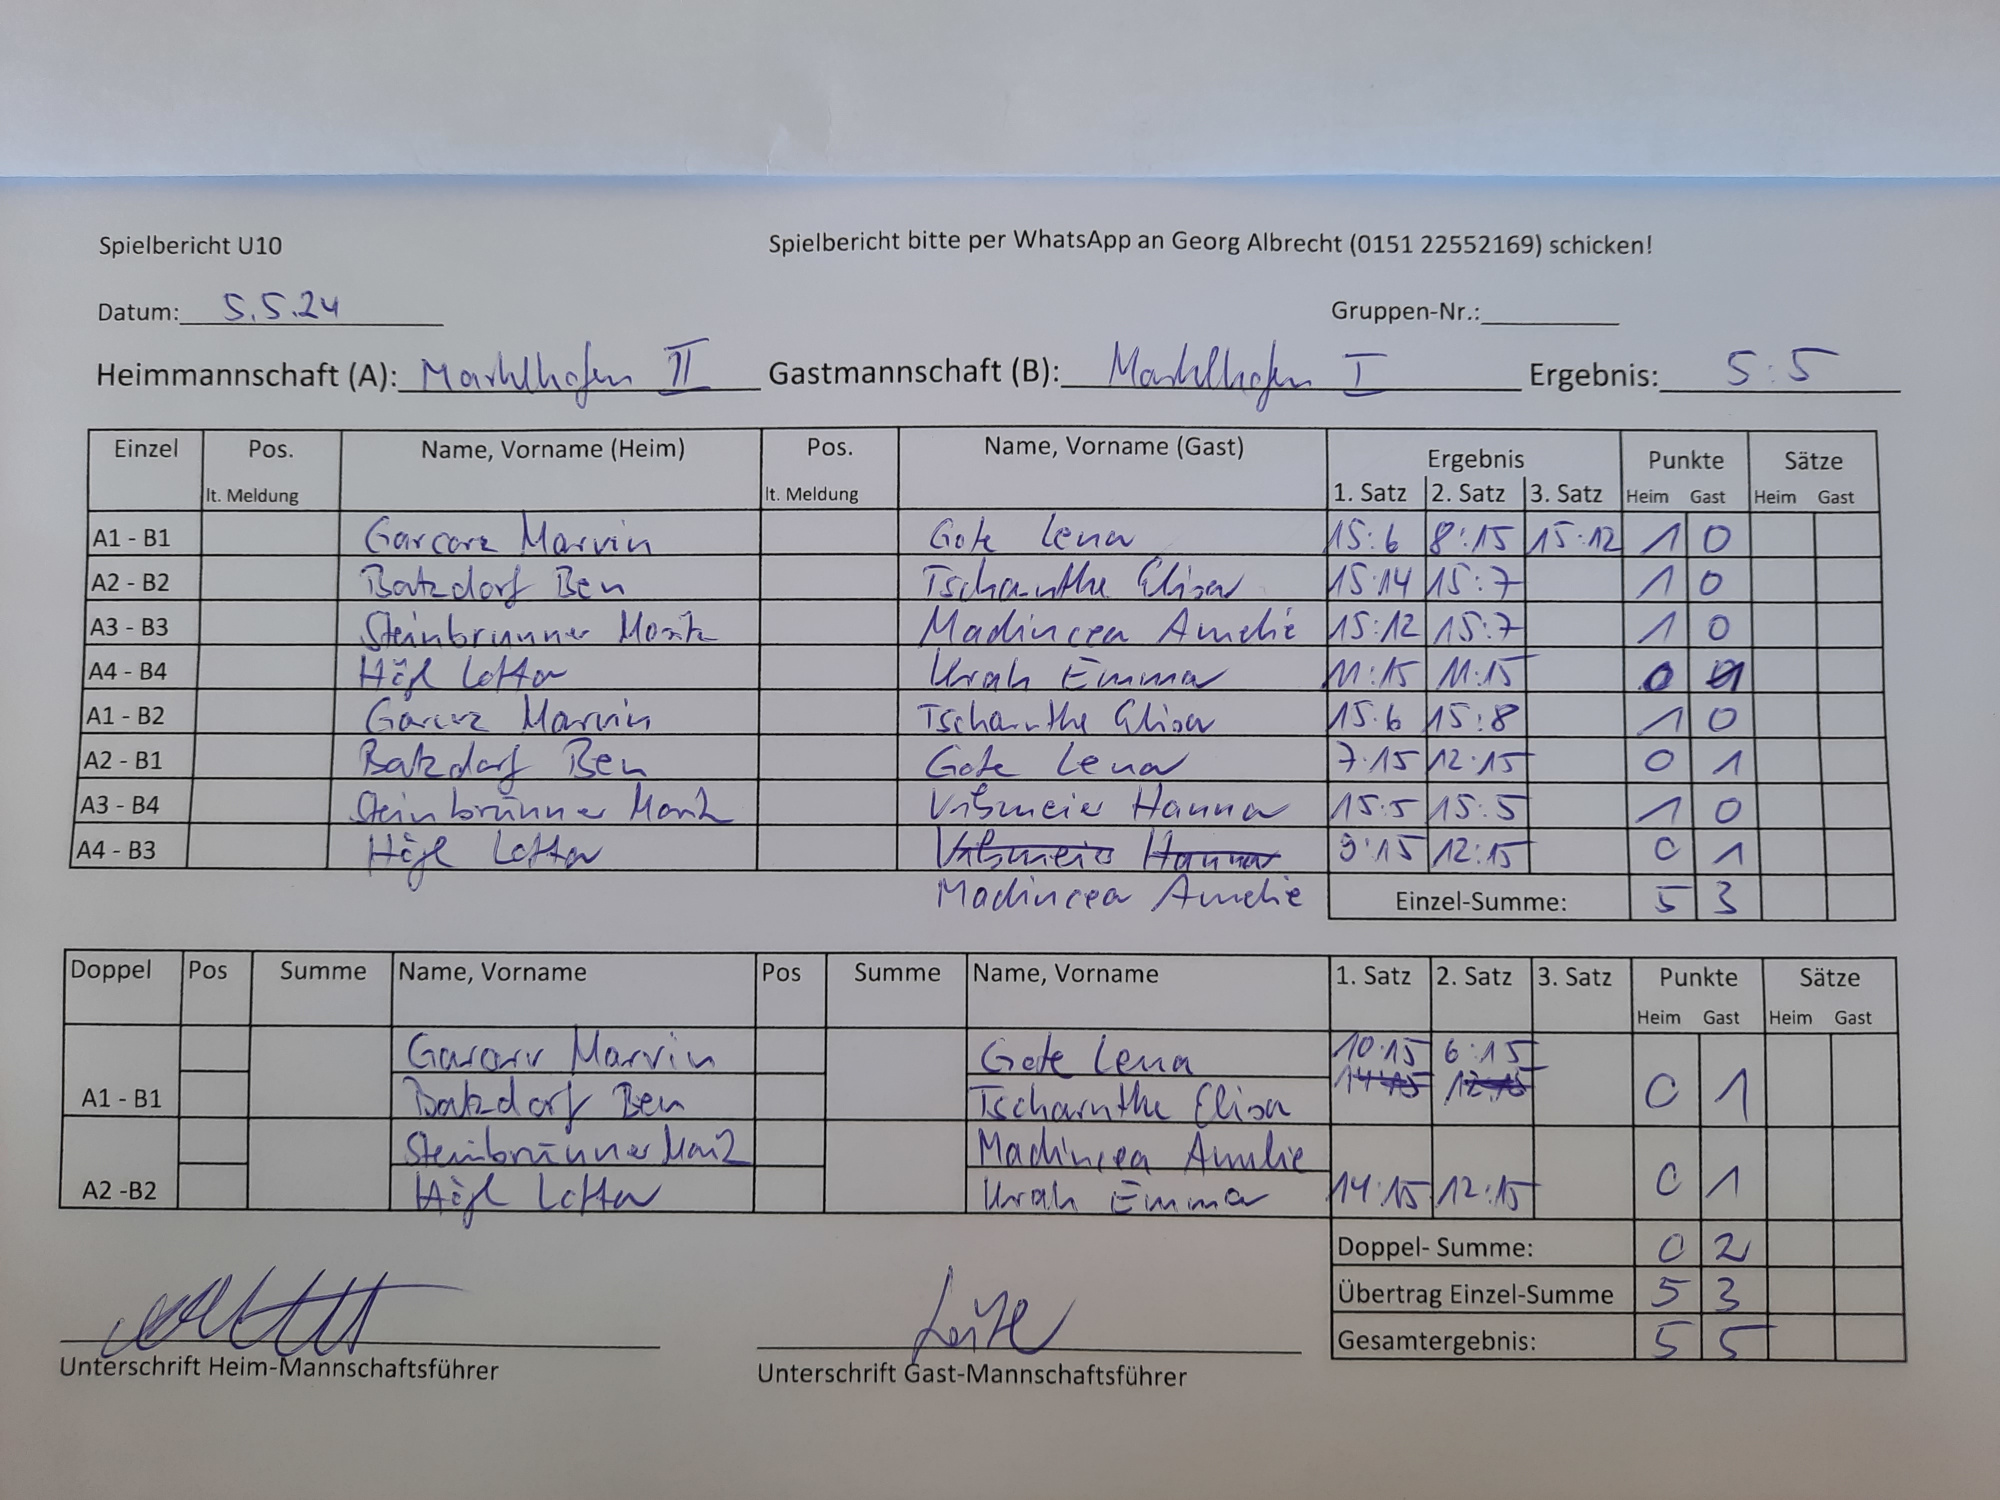 Spielbericht U10 Spielbericht bitte per WhatsApp an Georg Albrecht (0151 22552169) schicken!
Datum: 5.5.24 Gruppen-Nr.:
Heimmannschaft (A): Marklhofen II Gastmannschaft (B): Marklhofen I Ergebnis: 5:5
Einzel Pos. Name, Vorname (Heim) Pos. Name, Vorname (Gast) Ergebnis Punkte Sätze
lt. Meldung lt. Meldung 1. Satz 2. Satz 3. Satz Heim Gast Heim Gast
A1 - B1 Garcarz Marvin Gote Lena 15:6 8:15 15:12 1 0
A2 - B2 Batzdorf Ben Tscharnthe Elisa 15:14 15:7 1 0
A3 - B3 Steinbrunner Moritz Madincea Amelie 15:12 15:7 1 0
A4 - B4 Högl Lotta Emma 11:15 11:15 0
A1 - B2 Marvin Tscharnthe Elisa 15:6 15:8 1 0
A2 - B1 Batzdorf Ben Gote Lena 7:15 12:15 0 1
A3 - B4 Steinbrünner Hanna 15:5 15:5 1 0
A4 - B3 Högl Lotta 9:15 12:15 0 1
Madincea Amelie Einzel-Summe: 5 3
Doppel Pos Summe Name, Vorname Pos Summe Name, Vorname 1. Satz 2. Satz 3. Satz Punkte Sätze
Heim Gast Heim Gast
Marvin Gote Lena 10:15 6:15
A1 - B1 Batzdorf Ben Tscharnthe Elisa 14:15 12:15 0 1
Steinbrünner Madincea Amelie
A2 -B2 Högl Lotta Emma 14:15 12:15 0 1
Doppel- Summe: 0 2
Übertrag Einzel-Summe 5 3
Gesamtergebnis: 5 5
Unterschrift Heim-Mannschaftsführer Unterschrift Gast-Mannschaftsführer